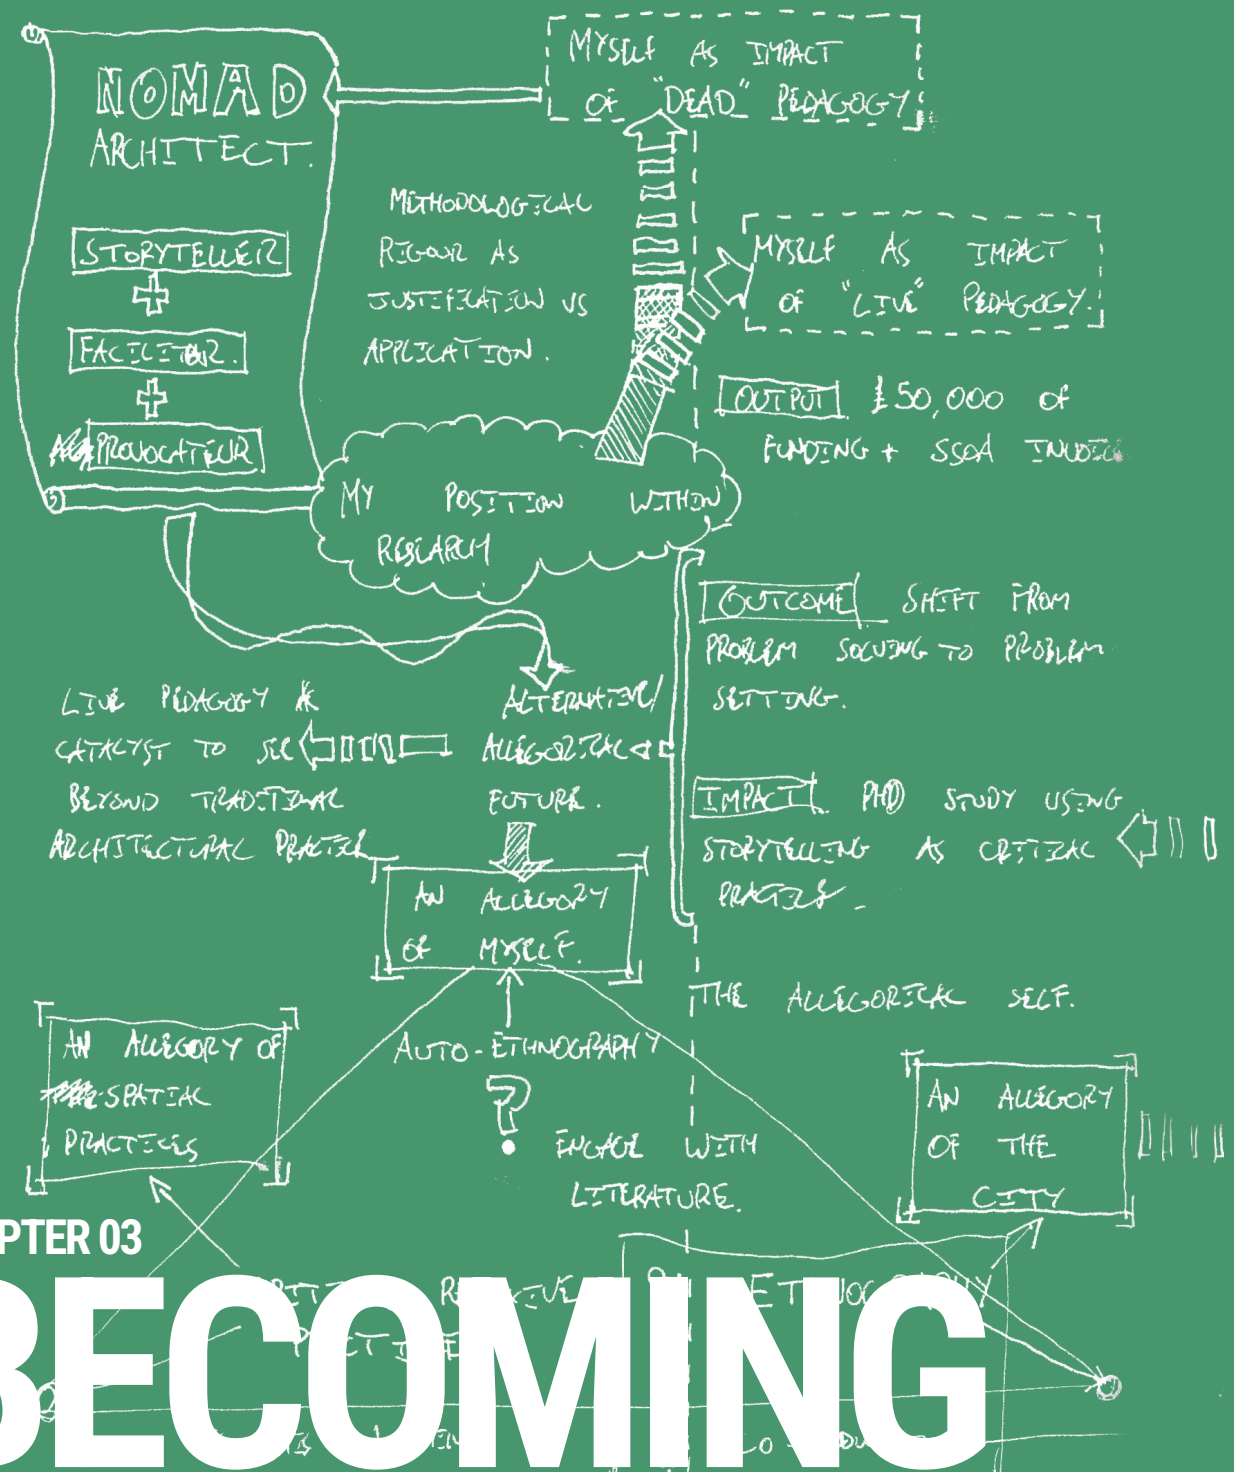 NOMAD
ARCHITECT.
STORYTELLER
FACILITATOR.
PROVOCATEUR
MYSELF AS IMPACT
OF "DEAD" PEDAGOGY.
METHODOLOGICAL
RIGOUR AS
JUSTIFICATION VS
APPLICATION.
MYSELF AS IMPACT
OF "LIVE" PEDAGOGY.
OUTPUT £50,000 OF
FUNDING + SSOA
MY POSITION WITHIN
RESEARCH
OUTCOME SHIFT FROM
PROBLEM SOLVING TO PROBLEM
SETTING.
LIVE PEDAGOGY AS
CATALYST TO SEE
BEYOND TRADITIONAL
ARCHITECTURAL PRACTICE
ALTERNATIVE/
ALLEGORICAL
FUTURE.
IMPACT PHD STUDY USING
STORYTELLING AS CRITICAL
PRACTICE
AN ALLEGORY
OF MYSELF.
THE ALLEGORICAL SELF.
AN ALLEGORY OF
SPATIAL
PRACTICES
AUTO-ETHNOGRAPHY
?
ENGAGE WITH
LITERATURE.
AN ALLEGORY
OF THE
CITY
PTER 03
BECOMING